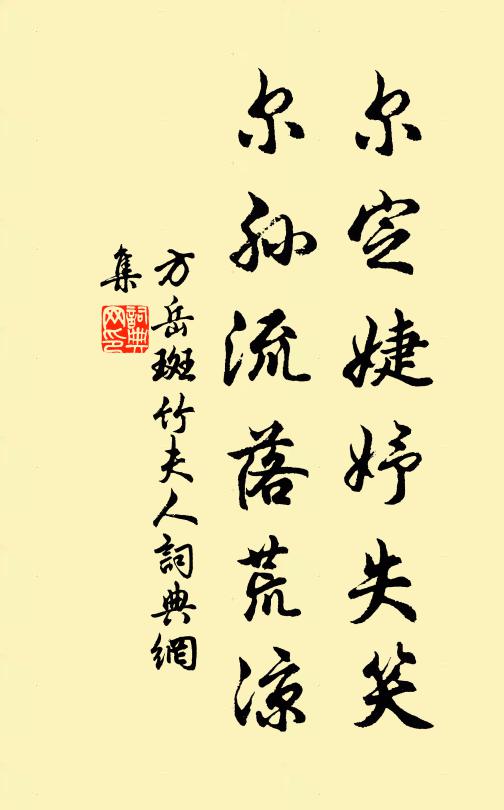 尔定婕妤失笑
尔孙流落荒凉
方岳斑竹夫人詞典網
集
詞典网印